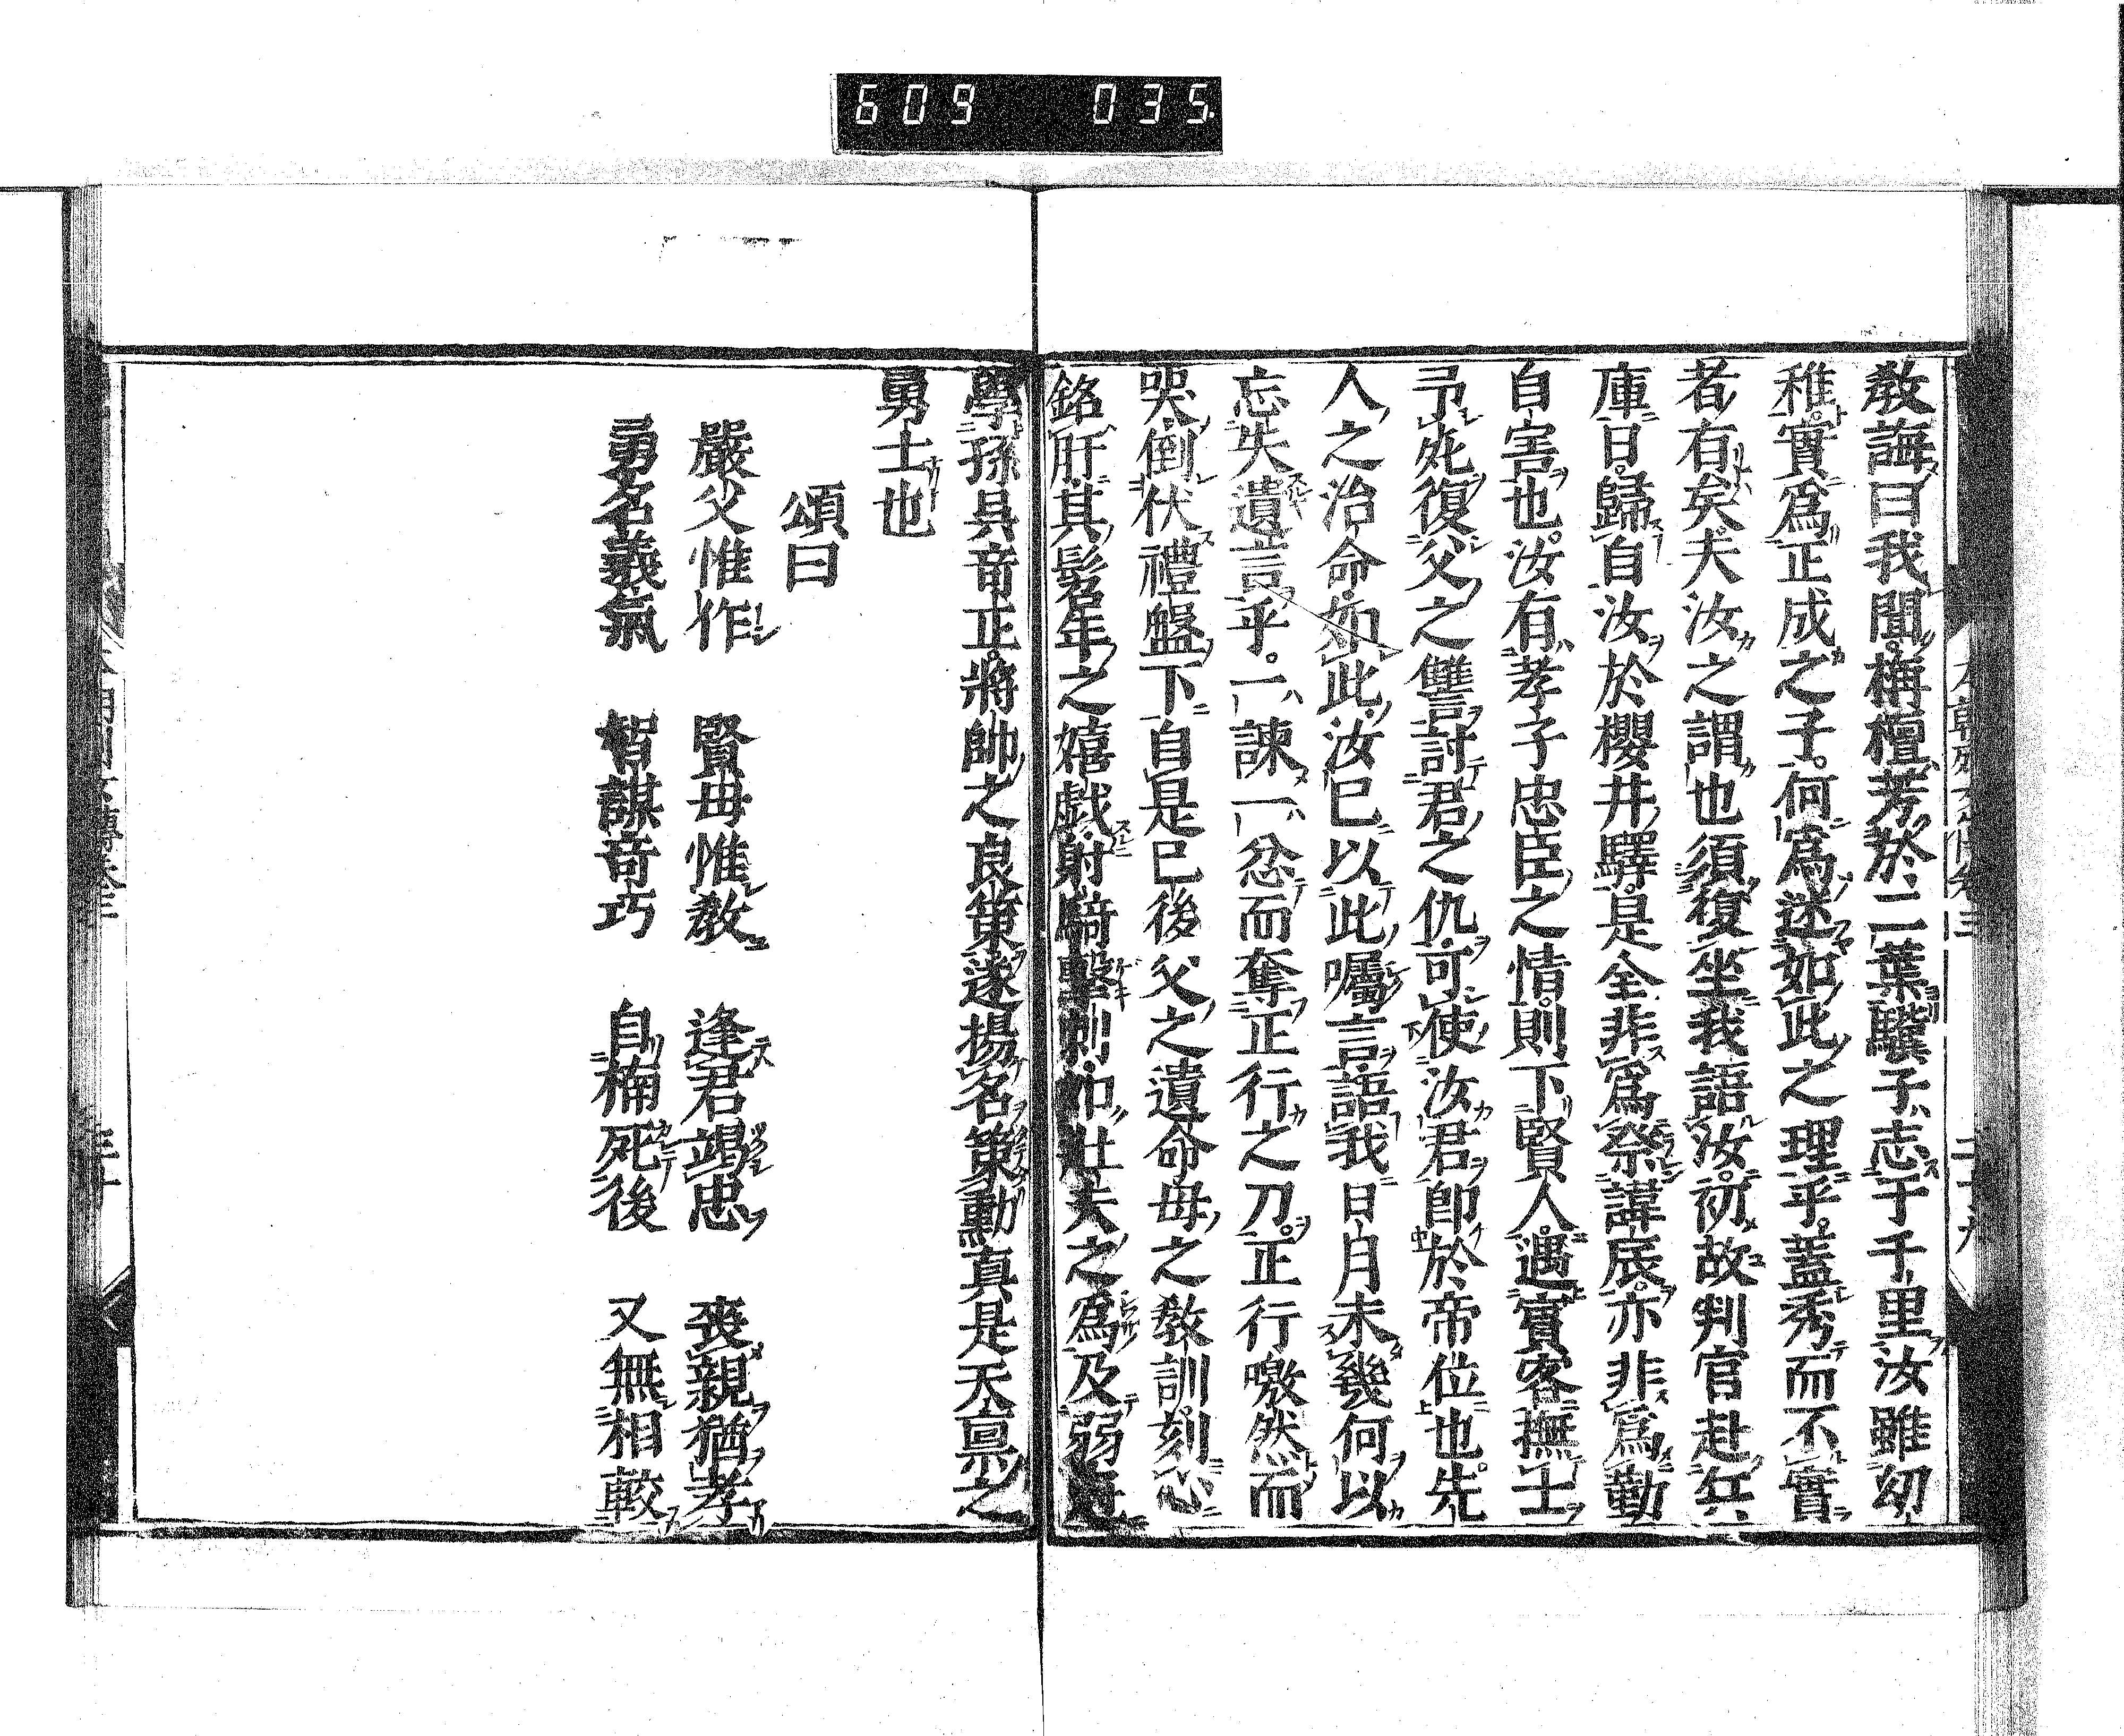 609 035
教誨曰我聞栴檀芳於二葉驥子志于千里汝雖幼
稚實爲正成之子何爲迷如此之理乎蓋秀而不實
者有矣夫汝之謂也須復坐我語汝初故判官赴兵
庫日歸自汝於櫻井驛是全非爲祭諱辰亦非爲勤
自害也汝有孝子忠臣之情則下賢人遇賓客撫士
弔死復父之讐討君之仇可使汝君卽於帝位也先
人之治命如此汝已以此囑言語我日月未幾何以
忘失遺言乎一諫一忿而奪正行之刀正行噭然而
哭倒伏禮盤下自是已後父之遺命母之教訓刻心
銘肝其髫年之嬉戯射騎擊刺如壯夫之爲及弱冠
學孫吳竒正將帥之良策遂揚名策勳真是天稟之
勇士也
頌曰
嚴父惟作 賢母惟教 逢君竭忠 喪親猶孝
勇名義氣 智謀竒巧 自楠死後 又無相較